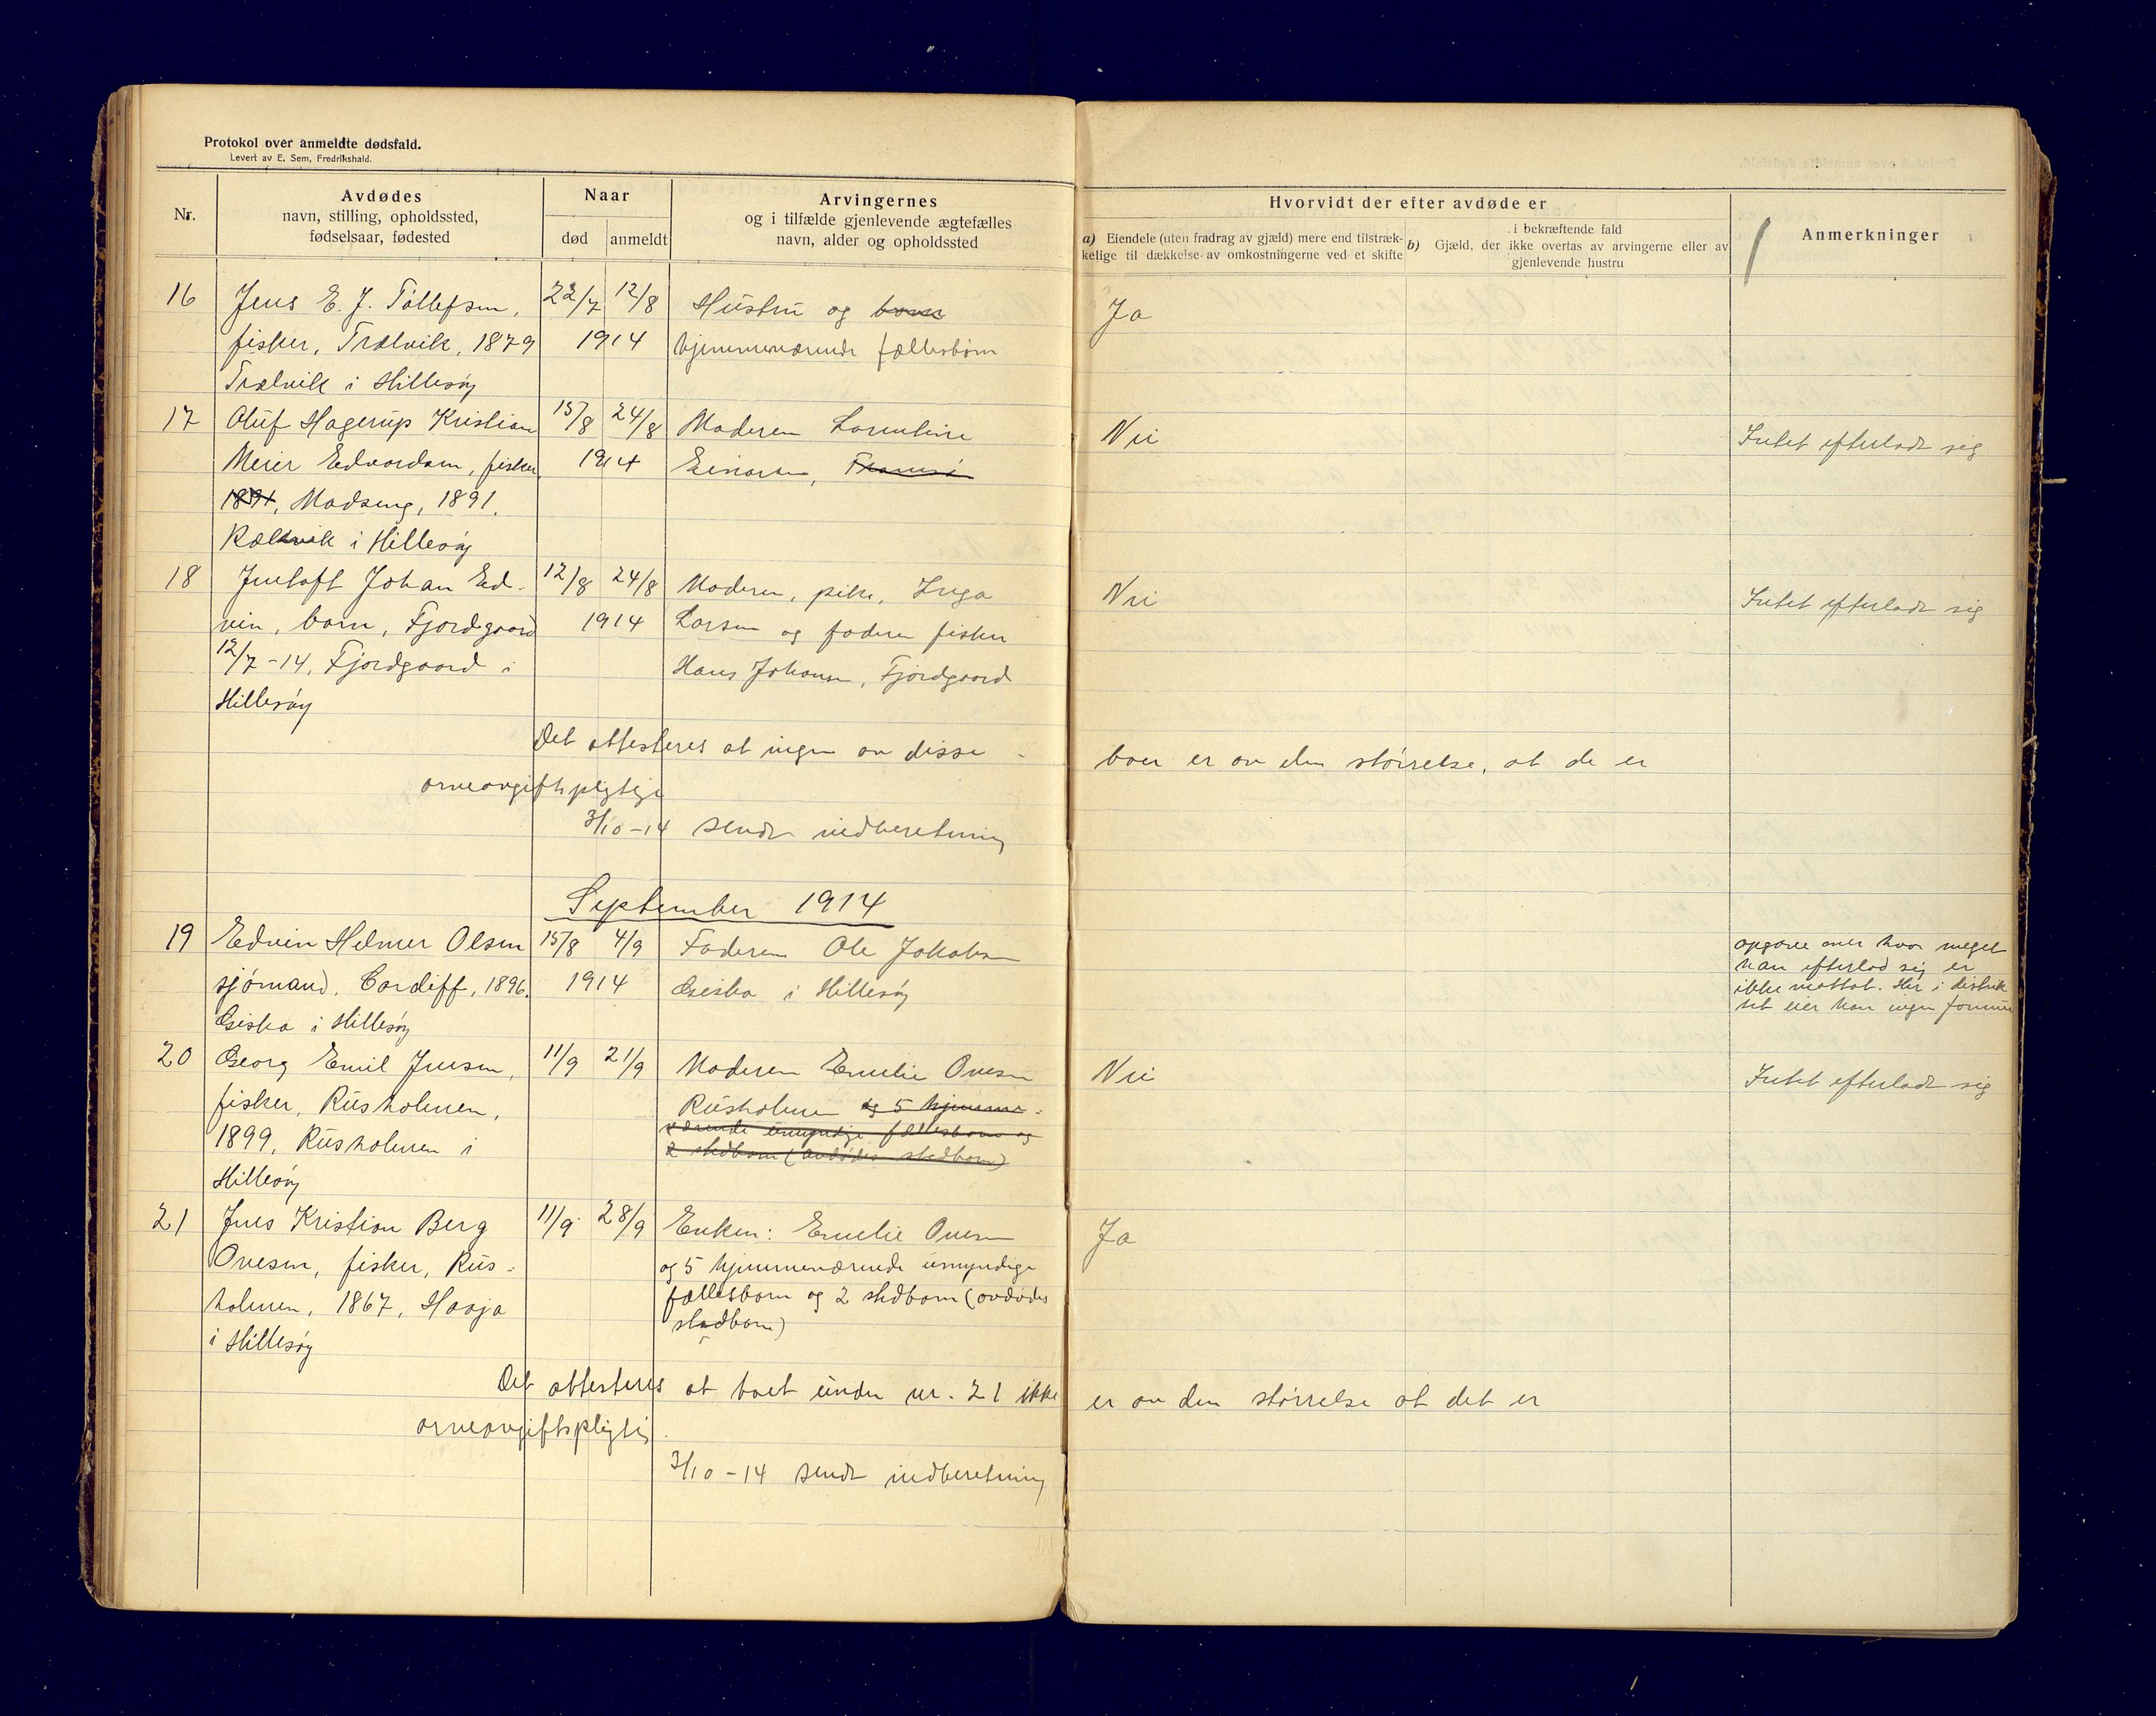 Protokol over anmeldte dødsfald.
Levert av E. Sem, Fredrikshald.
Nr.
Avdødes
navn, stilling, opholdssted,
fødselsaar, fødested
Naar
død
anmeldt
Arvingernes
og i tilfælde gjenlevende ægtefælles
navn, alder og opholdssted
Hvorvidt der efter avdøde er
a) Eiendele (uten fradrag av gjæld) mere end tilstræk-
kelige til dækkelse av omkostningerne ved et skifte
i bekræftende fald
b) Gjæld, der ikke overtas av arvingerne eller av
gjenlevende hustru
Anmerkninger
16 Jens E. J. Tollefsen, 22/7 12/8 Hustru og born Ja
fisker, Trælvik, 1879 1914 hjemmeværende fællesbørn
Trælvik i Hillesøy
17 Oluf Hagerup Kristian 15/8 24/8 Moderen Lorentine Nei Intet efterladt sig
Meier Edvardsen, fisker, 1914 Einarsen, Tromsø
1891, Madseng, 1891.
i Hillesøy
18 Jentoft Johan Ed- 12/8 24/8 Moderen, pike, Inga Nei Intet efterladt sig
vin, barn, Fjordgaard 1914 Larsen og faderen fisker
12/7-14, Fjordgaard i Hans Johansen, Fjordgaard
Hillesøy
Det attesteres at ingen av disse boer er av den størrelse, at de er
arveavgiftspligtige
3/10-14 sendt indberetning
September 1914
19 Edvin Helmer Olsen 15/8 4/9 Faderen Ole Jakobsen
sjømand, Cardiff, 1896. 1914 Geska i Hillesøy
Geska i Hillesøy
opgave over hvor meget
han efterlod sig er
ikke mottat. Her i distrik
tet eier han ingen formue
20 Georg Emil Jensen, 11/9 21/9 Moderen Emelie Ovesen Nei Intet efterladt sig
fisker, Rusholmen, Rusholmen og 5 hjemme-
1899, Rusholmen i værende umyndige fællesbarn og
Hillesøy 2 stedbarn (avdødes stedbarn)
21 Jens Kristian Berg 11/9 28/9 Enken: Emelie Ovesen Ja
Ovesen, fisker, Rus- og 5 hjemmeværende umyndige
holmen, 1867, Haaja fællesbarn og 2 stedbarn (avdødes
i Hillesøy stedbarn)
Det attesteres at boet under nr. 21 ikke er av den størrelse at det er
arveavgiftspligtig.
3/10-14 sendt indberetning